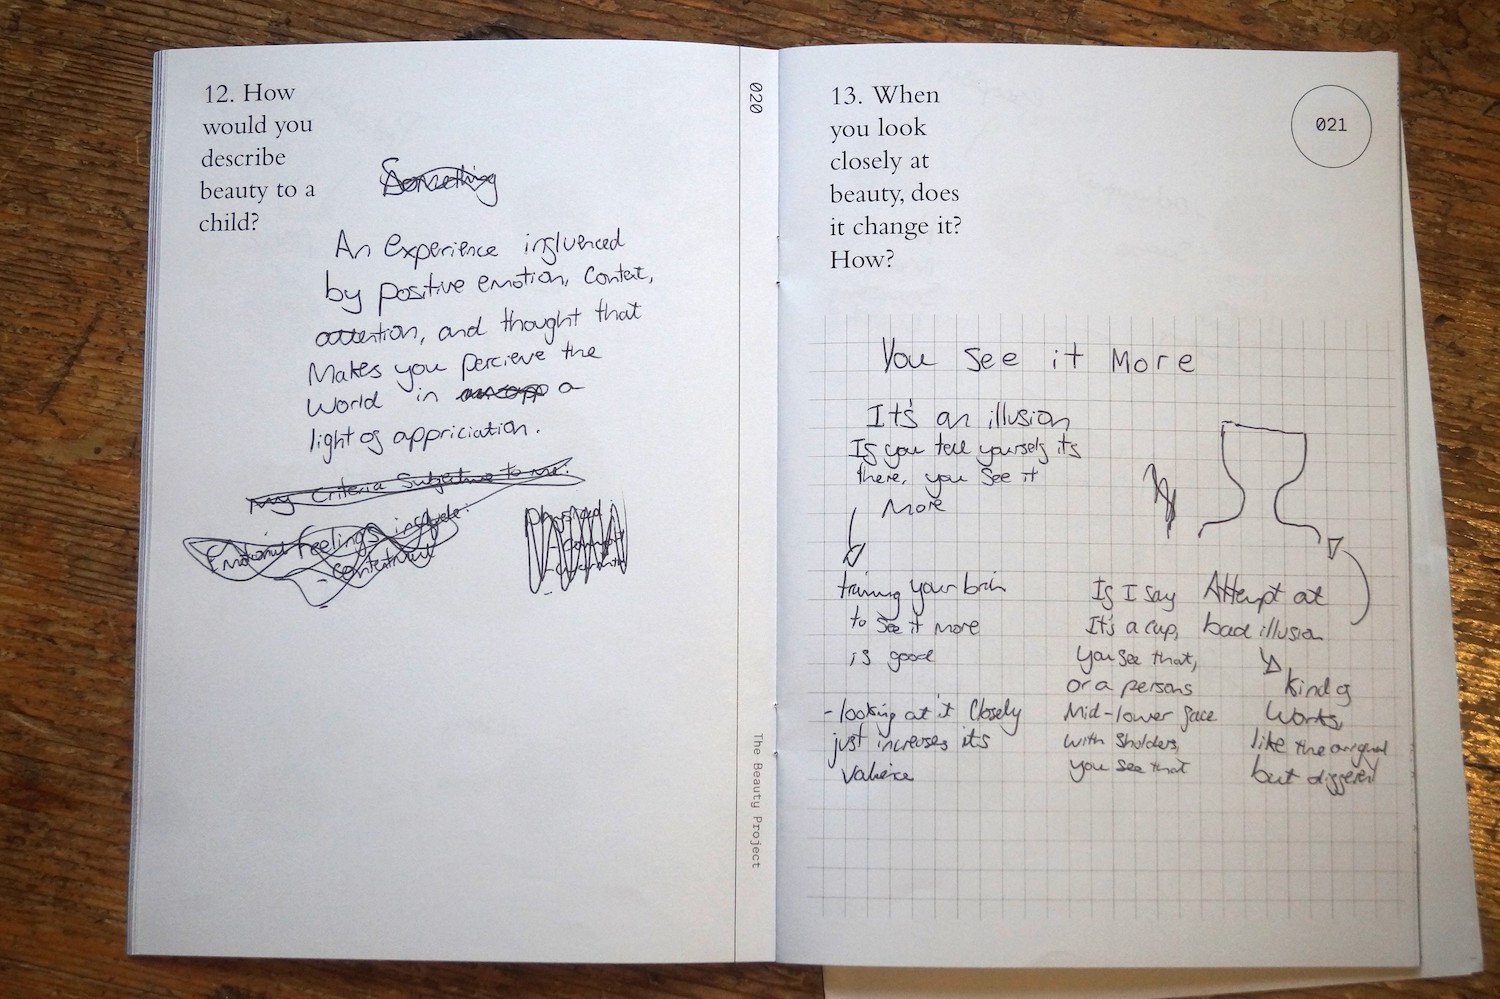 12. How
would you
describe
beauty to a
child?
Something
An experience influenced
by positive emotion, context,
attention, and thought that
Makes you percieve the
World in a
light of appriciation.
My Criteria Subjective to me.
Emotional Feelings include:
- contentment
Physical
020
The Beauty Project
13. When
you look
closely at
beauty, does
it change it?
How?
021
You see it More
It's an illusion
If you tell yourself its
there, you see it
More
training your brain
to see it more
is good
- looking at it Closely
just increases its
Valience
If I say
It's a cup,
you see that,
or a persons
Mid-lower face
with sholders,
you see that
Attempt at
bad illusion
kind of
works,
like the original
but different